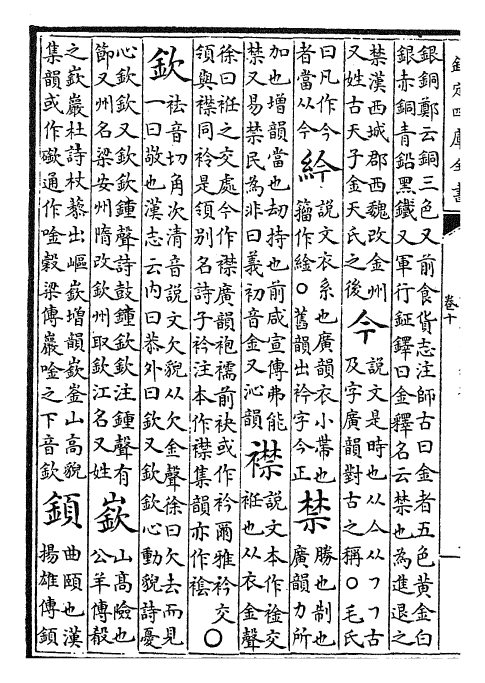 欽定四庫全書
卷十
銀銅鄭云銅三色又前食貨志注師古曰金者五色黃金白
銀赤銅青鉛黑鐵又軍行鉦鐸曰金釋名云禁也為進退之
禁漢西城郡西魏改金州
又姓古天子金天氏之後
今
說文是時也从亼从㇇㇇古
及字廣韻對古之稱○毛氏
曰凡作今
者當从令
紟
說文衣系也廣韻衣小帶也
籀作絵○舊韻出衿字今正
禁
勝也制也
廣韻力所
加也增韻當也刼持也前咸宣傳弗能
禁又易禁民為非曰義初音金又沁韻
襟
說文本作䘳交
袵也从衣金聲
徐曰袵之交處今作襟廣韻袍襦前袂或作衿爾雅衿交
領與襟同衿是領别名詩子衿注本作襟集韻亦作裣
○
欽
祛音切角次清音說文欠貌从欠金聲徐曰欠去而見
一曰敬也漢志云内曰恭外曰欽又欽欽心動貌詩憂
心欽欽又欽欽鍾聲詩鼓鍾欽欽注鍾聲有
節又州名梁安州隋改欽州取欽江名又姓
嶔
山高險也
公羊傳殽
之嶔巖杜詩杖藜出嶇嶔增韻嶔崟山高貌
集韻或作通作唫穀梁傳巖唫之下音欽
顉
曲頤也漢
揚雄傳顉